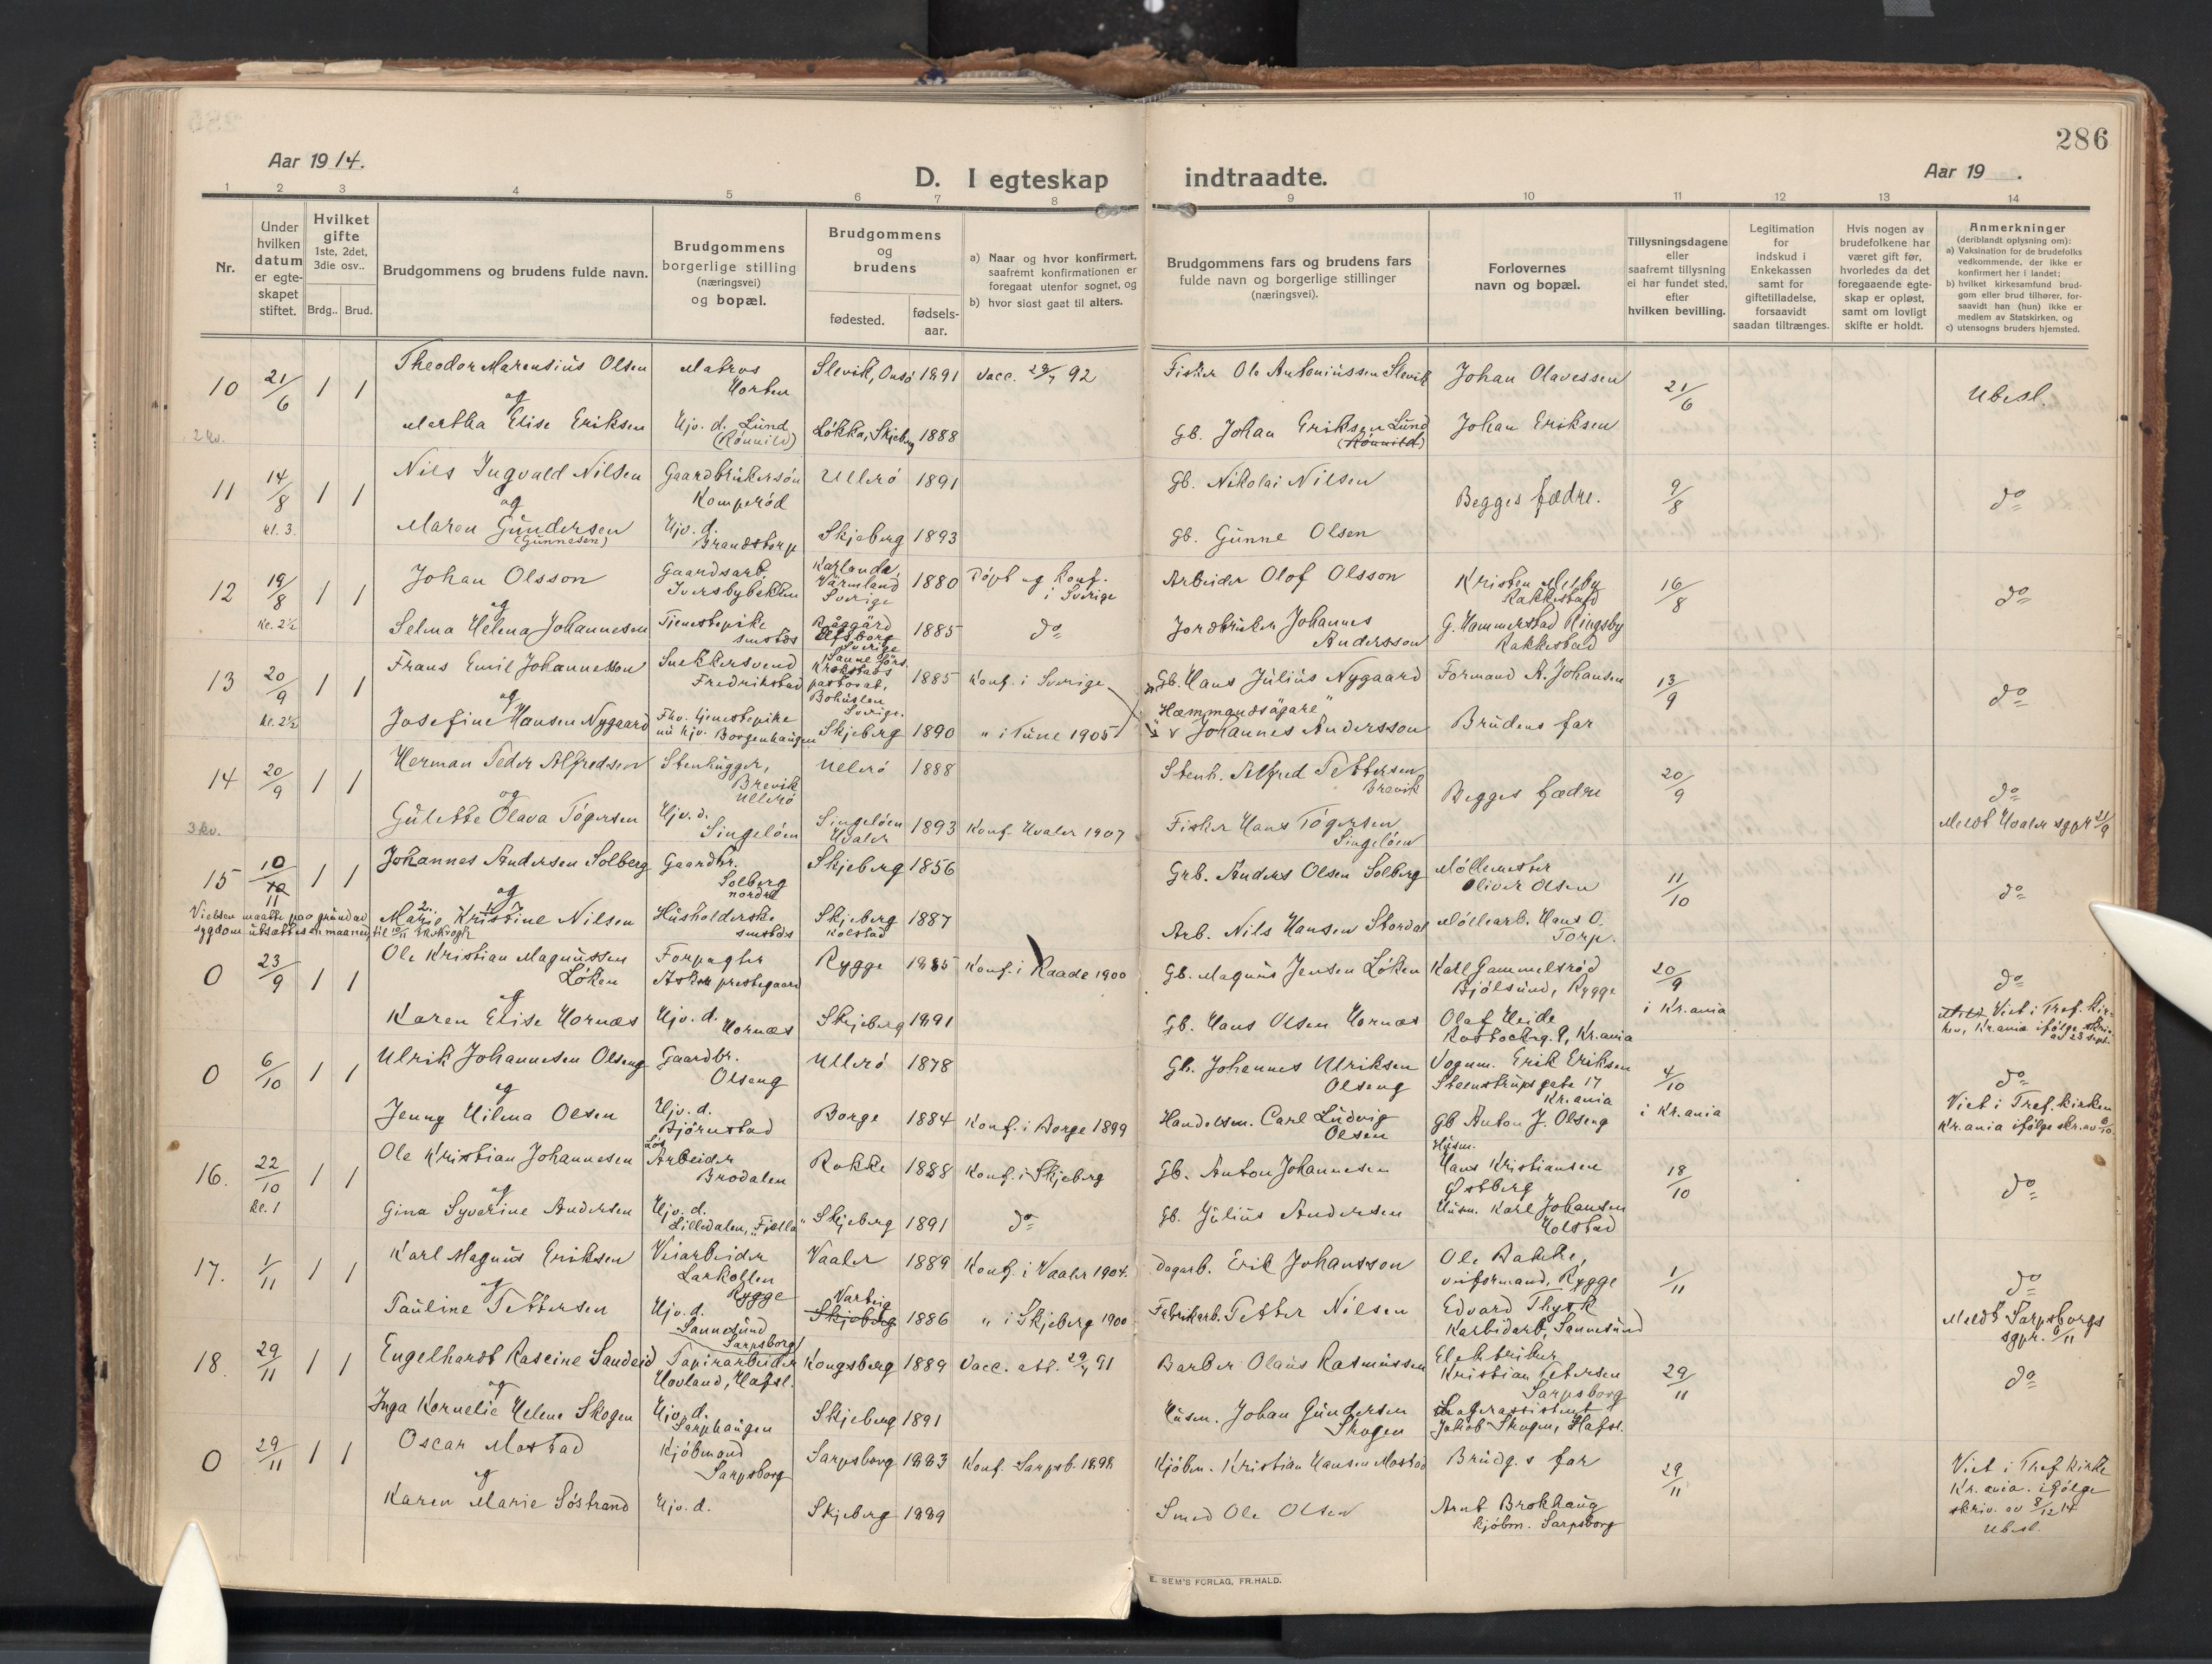 286
Aar 1914.
D. I egteskap indtraadte.
Aar 19 .
1 2 3 4 5 6 7 8 9 10 11 12 13 14
Nr.
Under hvilken datum er egte-skapet stiftet.
Hvilket gifte 1ste, 2det, 3die osv..
Brdg.. Brud.
Brudgommens og brudens fulde navn.
Brudgommens borgerlige stilling (næringsvei) og bopæl.
Brudgommens og brudens
fødested. fødsels-aar.
a) Naar og hvor konfirmert, saafremt konfirmationen er foregaat utenfor sognet, og
b) hvor sidst gaat til alters.
Brudgommens fars og brudens fars fulde navn og borgerlige stillinger (næringsvei).
Forlovernes navn og bopæl.
Tillysningsdagene eller saafremt tillysning ei har fundet sted, efter hvilken bevilling.
Legitimation for indskud i Enkekassen samt for giftetilladelse, forsaavidt saadan tiltrænges.
Hvis nogen av brudefolkene har været gift før, hvorledes da det foregaaende egte-skap er opløst, samt om lovligt skifte er holdt.
Anmerkninger (deriblandt oplysning om):
a) Vaksination for de brudefolks vedkommende, der ikke er konfirmert her i landet;
b) hvilket kirkesamfund brud-gom eller brud tilhører, for-saavidt han (hun) ikke er medlem av Statskirken, og
c) utensogns bruders hjemsted.
10 21/6 1 1 Theodor Marensius Olsen Matros Horten Slevik, Onsø 1891 Vacc. 92 Fisker Ole Antoniussen Slevik Johan Olavessen 21/6 Ubesl.
og
2 kv. Martha Elise Eriksen Hjv. d. Lund (Rønnild) Løkka, Skjeberg 1888 Gb. Johan Eriksen Lund (Rønnild) Johan Eriksen
11 14/8 1 1 Nils Ingvald Nilsen Gaardbrukersøn Komperød Ullerø 1891 Gb. Nikolai Nilsen Begges fædre. 9/8 do
og
kl. 3. Maren Gundersen (Gunnesen) Hjv. d. Brandstorp Skjeberg 1893 Gb. Gunne Olsen
12 19/8 1 1 Johan Olsson Gaardsarb. Iversbybakken Karlanda, Värmland Sverige 1880 Døpt og konf. i Sverige Arbeider Olof Olsson Kristen Melby Rakkestad 16/8 do
og
kl. 2½ Selma Helena Johannesen Tjenestepike smstds Sverige 1885 do Jordbruker Johannes Andersson G. Hammerstad Ringsby Rakkestad
13 20/9 1 1 Frans Emil Johannesson Snekkersvend Fredrikstad Sanne förs. Krokstads pastorat, Bohuslen Sverige. 1885 Konf. i Sverige Gb. Hans Julius Nygaard Formand A. Johansen 13/9 do
og
kl. 2½ Josefine Hansen Nygaard Fhv. tjenestepike nu hjv. Borgenhaugen Skjeberg 1890 " i Tune 1905 "Hæmmandsägare" Johannes Andersson Brudens far
14 20/9 1 1 Herman Peder Alfredsen Stenhugger, Brevik Ullerø Ullerø 1888 Stenh. Alfred Pettersen Brevik Begges fædre 20/9 do
og
3 kv. Gulette Olava Tøgersen Hjv. d. Singeløen Singeløen Hvaler 1893 Konf. Hvaler 1907 Fisker Hans Tøgersen Singeløen Meldt Hvaler sgpr 21/9
15 10/11 1 1 Johannes Andersen Solberg Gaardbr. Solberg nordre Skjeberg 1856 Grb. Anders Olsen Solberg Møllemester Oliver Olsen 11/10 do
og
Vielsen maatte paa grund av sygdom utsættes en maaned, til 10/11
Marie Kristine Nilsen Husholderske smstds Skjeberg Kolstad 1887 Arb. Nils Hansen Stordal Møllearb. Hans O. Torp.
0 23/9 1 1 Ole Kristian Magnussen Løken Forpagter Askim prestegaard Rygge 1885 Konf. i Raade 1900 Gb. Magnus Jensen Løken Karl Gammelsrød Bjølsund, Rygge 20/9 i Kr.ania do
og
Karen Elise Hornæs Hjv. d. Hornæs Skjeberg 1891 Gb. Hans Olsen Hornæs Olaf Heide Rostockg. 9, Kr.ania Viet i Tref. kir-ken, Kr.ania ifølge skriv. av 23 sept.
0 6/10 1 1 Ulrik Johannesen Olseng Gaardbr. Olseng Ullerø 1878 Gb. Johannes Ulriksen Olseng Vognm. Erik Eriksen Steenstrups gate 17 Kr.ania 4/10 i Kr.ania do
og
Jenny Hilma Olsen Hjv. d. Bjørnstad Borge 1884 Konf. i Borge 1899 Handelsm. Carl Ludvig Olsen Gb Anton J. Olseng Viet i Tref. kirken Kr.ania ifølge skr. av 6/10.
16. 22/10 1 1 Ole Kristian Johannesen Løs Arbeider Brodalen Rokke 1888 Konf. i Skjeberg Gb. Anton Johannesen Husm. Hans Kristiansen Østberg 18/10 do
og
kl. 1 Gina Syverine Andersen Hjv. d. Lilledalen, "Fjella" Skjeberg 1891 do Gb. Julius Andersen Husm. Karl Johansen Holstad
17. 1/11 1 1 Karl Magnus Eriksen Veiarbeider Larkollen Rygge Vaaler 1889 Konf. i Vaaler 1904. Dagarb. Erik Johansson Ole Bakke, veiformand, Rygge 1/11 do
og
Pauline Pettersen Hjv. d. Sannesund Sarpsborg Varteig Skjeberg 1886 " i Skjeberg 1900 Fabrikarb. Petter Nilsen Edvard Thysk Karbidarb, Sannesund Meldt Sarpsborgs sgpr. /11
18. 29/11 1 1 Engelhardt Rascine Sandeid Papirarbeider Hovland, Hafsl. Kongsberg 1889 Vacc. att. 91 Barber Olaus Rasmussen Elektriker Kristian Petersen Sarpsborg 29/11 do
og
Inga Kornelie Helene Skogen Hjv. d. Sarphaugen Skjeberg 1891 Husm. Johan Gundersen Skogen Lagerassistent Jakob Skogen, Hafsl.
0 29/11 1 1 Oscar Mostad Kjøbmand Sarpsborg Sarpsborg 1883 Konf. Sarpsb. 1898 Kjøbm. Kristian Hansen Mostad Brudg.s far 29/11 Viet i Tref kirke Kr.ania. ifølge skriv. av 8/12 14 Ubesl.
og
Karen Marie Søstrand Hjv. d. Skjeberg 1889 Smed Ole Olsen Arnt Brokhaug kjøbm. Sarpsborg
E. SEM'S FORLAG, FR.HALD.